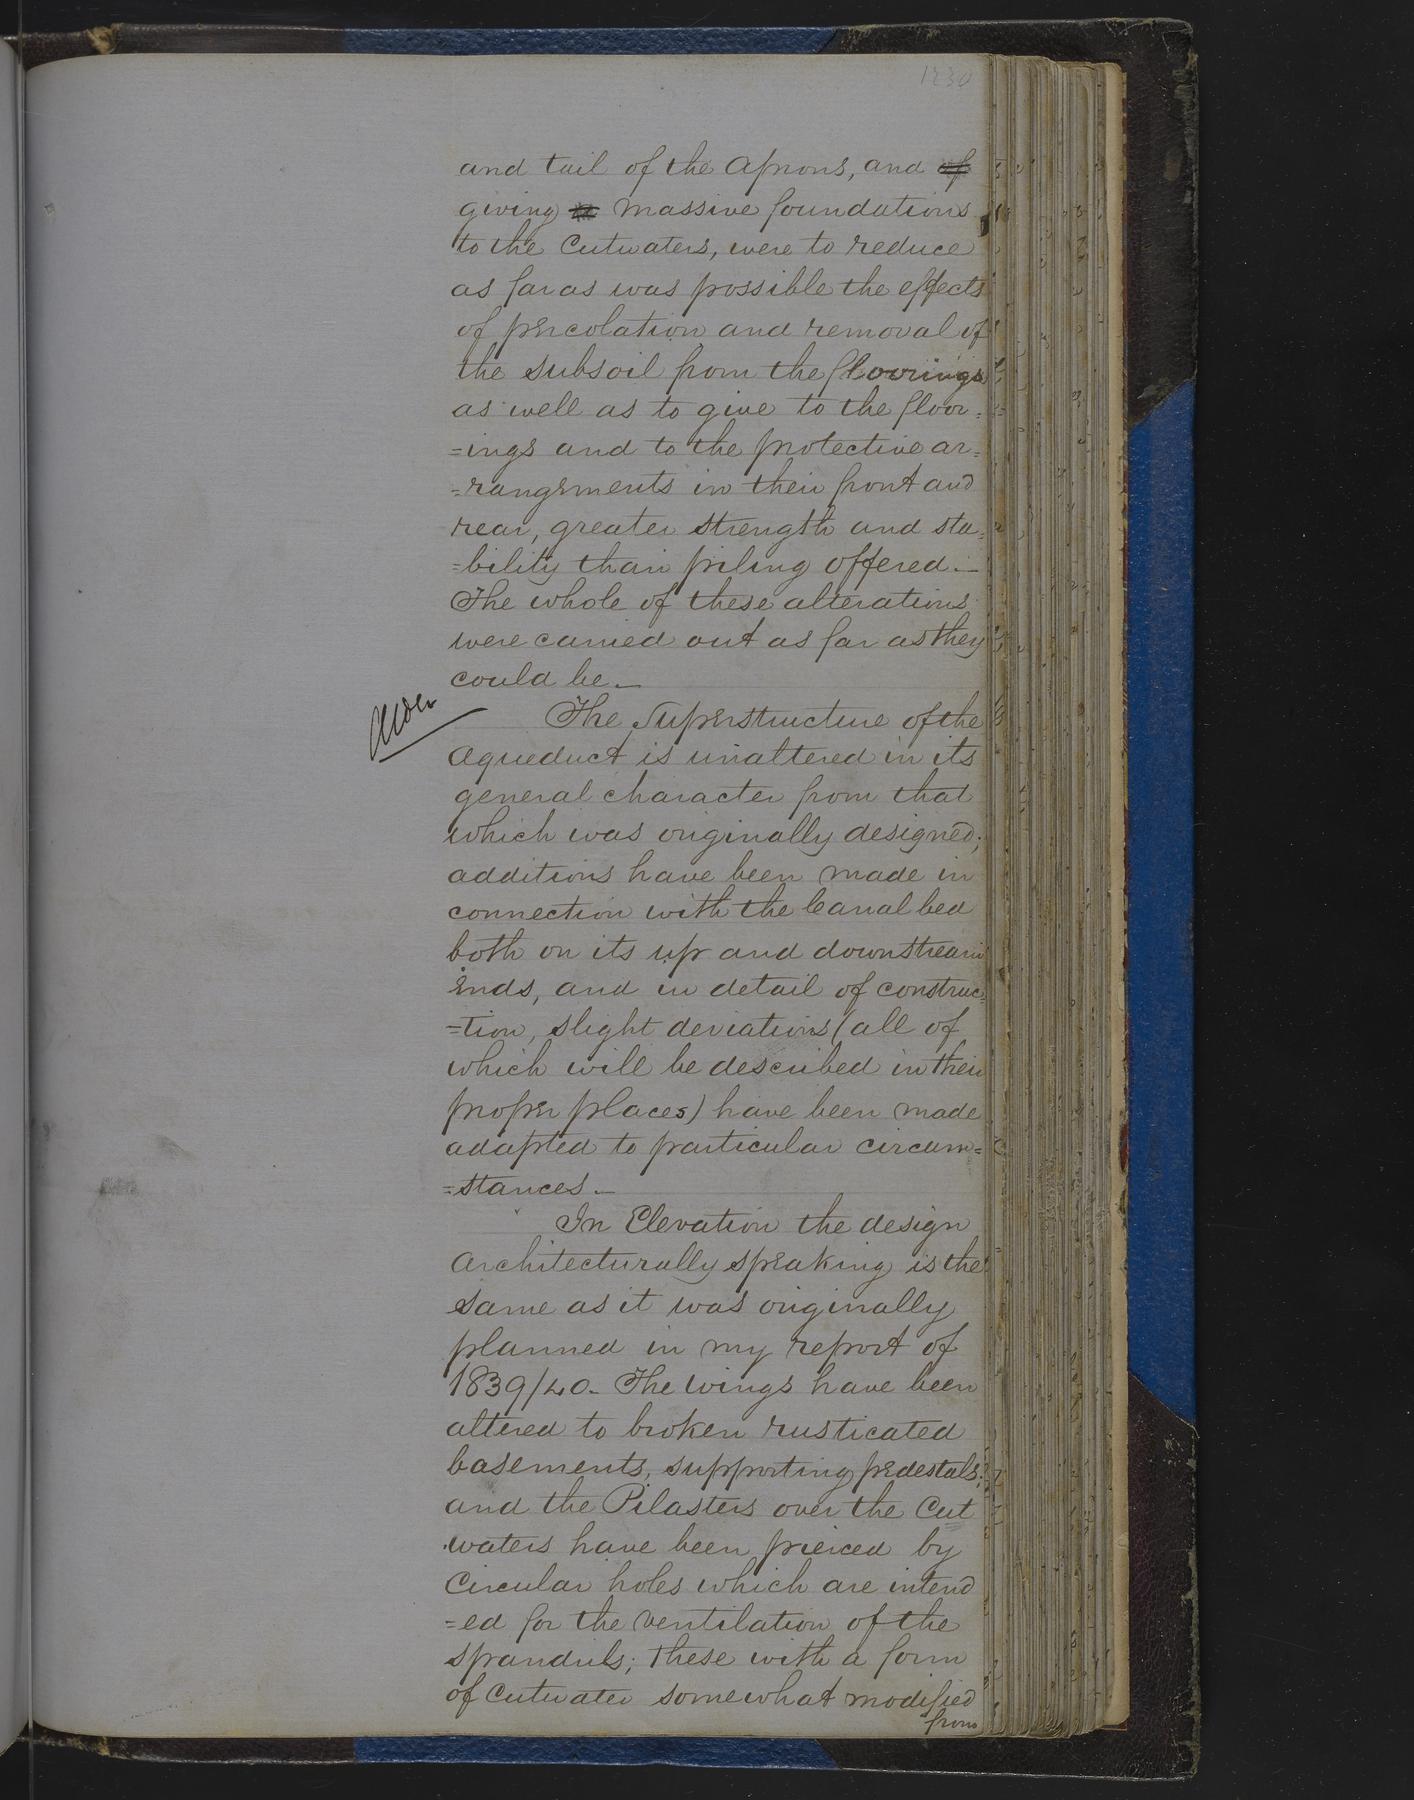 and tail of the Aprons, and of
giving a massive foundations
to the Cutwaters, were to reduce
as far as was possible the effects
of percolation and removal of
the subsoil from the floorings
as well as to give to the floor-
=ings and to the protective ar=
=rangements in their front and
rear, greater strength and sta=
=bility than piling offered.—
The whole of these alterations
were carried out as far as they
could be.—
The Superstructure of the
Aqueduct is unaltered in its
general character from that
which was originally designed;
additions have been made in
connection with the Canal bed
both on its up and downstream
Ends, and in detail of construc=
=tion, slight deviations (all of
which will be described in their
proper places) have been made
adapted to particular circum=
=stances.—
In Elevation the design
Architecturally speaking is the
same as it was originally
planned in my report of
1839/40. The wings have been
altered to broken rusticated
basements, supporting pedestals;
and the Pilasters over the Cut
waters have been pierced by
Circular holes which are intend
=ed for the ventilation of the
spandrils; these with a form
of Cutwater somewhat modified
from